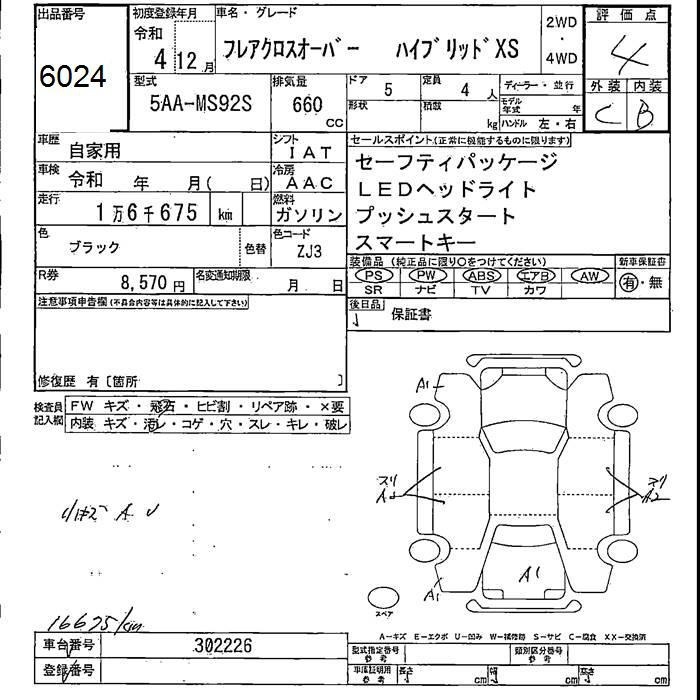 出品番号
6024
初度登録年月
令和
4 12月
車名・グレード
フレアクロスオーバー ハイブリッドXS
2WD
・
4WD
評価点
4
外装 内装
C B
型式
5AA-MS92S
排気量
660
CC
ドア
5
定員
4 人
形状
積載
kg
ディーラー・並行
モデル年式 年
ハンドル 左・右
車歴
自家用
シフト
IAT
車検
令和 年 月( 日)
冷房
AAC
走行
1万6千675 km
燃料
ガソリン
色
ブラック
色替
色コード
ZJ3
R券
8,570円
名変通知期限
月 日
セールスポイント(正常に機能するものに限ります)
セーフティパッケージ
LEDヘッドライト
プッシュスタート
スマートキー
装備品(純正品に限り○をつけてください)
PS PW ABS エアB AW
SR ナビ TV カワ
新車保証書
有・無
後日品
保証書
注意事項申告欄(不具合内容等は具体的に記入して下さい)
修復歴 有〔箇所 〕
検査員記入欄
FW キズ・飛石・ヒビ割・リペア跡・×要
内装 キズ・汚レ・コゲ・穴・スレ・キレ・破レ
A U
16675km
A1
スリ
A2
スリ
A2
A1
A1
スペア
A-キズ E-エクボ U-凹み W-補修跡 S-サビ C-腐食 XX-交換済
車台番号
302226
登録番号
型式指定番号
参考
類別区分番号
参考
車庫証明用
参考
長さ cm
幅 cm
高さ cm